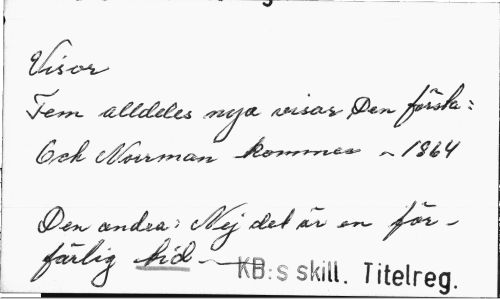 Visor
Fem alldeles nya visor Den första:
Och Norrman kommer – 1864
Den andra: Nej det är en för-
färlig tid –
KB:s skill. Titelreg.